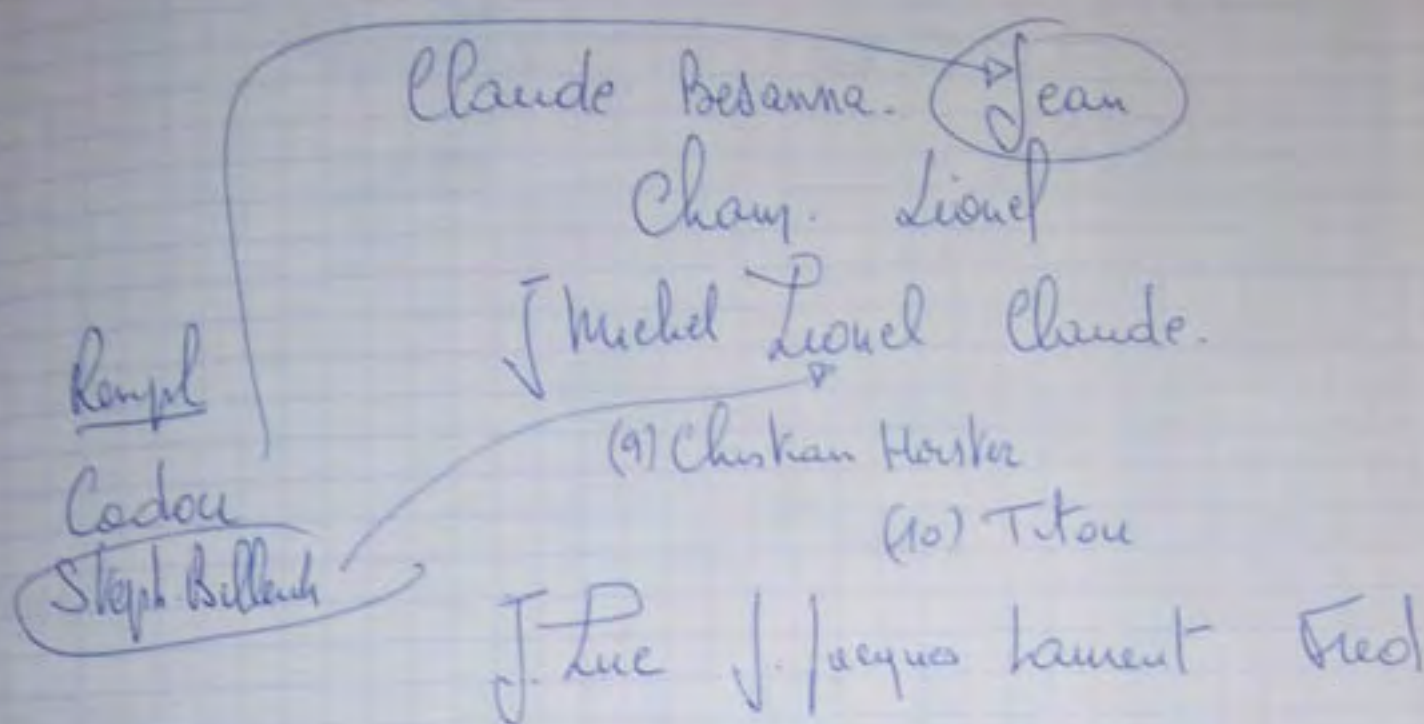 Claude Besanna. Jean
Cham. Lionel
J Michel Lionel Claude.
Rempl
(9) Christian Horster
Cadou
(10) Titou
Steph
J. Luc J. Jacques Laurent Fred